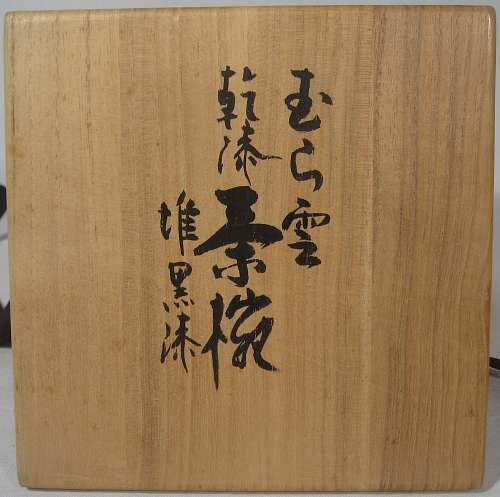 むら雲
乾漆茶椀
堆黒漆